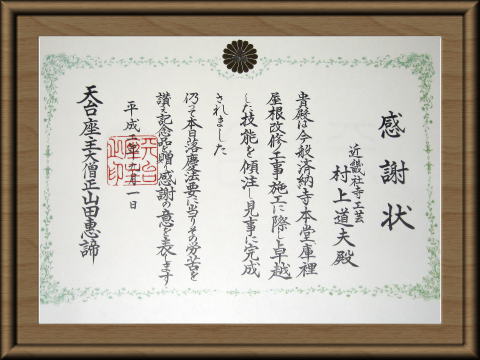 感謝状
近畿社寺工芸
村上道夫殿
貴殿は今般済納寺本堂庫裡
屋根改修工事施工に際し卓越
した技能を傾注し見事に完成
されました
仍て本日落慶法要に当りその労苦を
讃え記念品を贈り感謝の意を表します
平成二年四月一日
天台座主大僧正山田恵諦